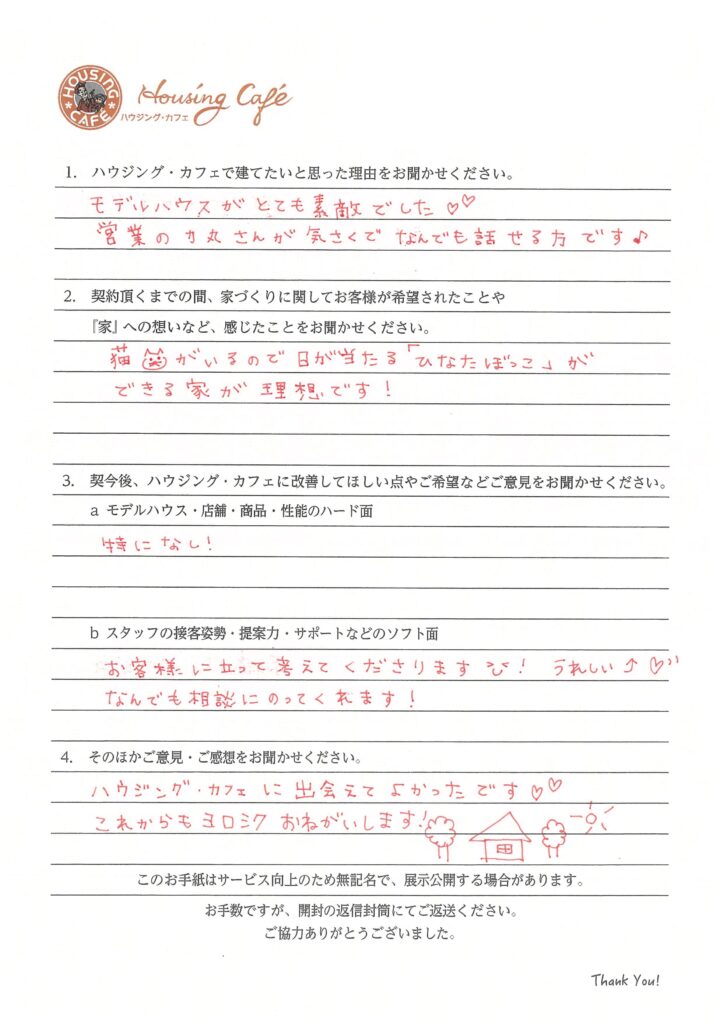 HOUSING CAFÉ
Housing Café
ハウジング・カフェ
1. ハウジング・カフェで建てたいと思った理由をお聞かせください。
モデルハウスがとても素敵でした♡♡
営業の力丸さんが気さくでなんでも話せる方です♪
2. 契約頂くまでの間、家づくりに関してお客様が希望されたことや
『家』への想いなど、感じたことをお聞かせください。
猫がいるので日が当たる「ひなたぼっこ」が
できる家が理想です!
3. 契今後、ハウジング・カフェに改善してほしい点やご希望などご意見をお聞かせください。
a モデルハウス・店舗・商品・性能のハード面
特になし!
b スタッフの接客姿勢・提案力・サポートなどのソフト面
お客様に立って考えてくださります! うれしい↑♡
なんでも相談にのってくれます!
4. そのほかご意見・ご感想をお聞かせください。
ハウジング・カフェに出会えてよかったです♡♡
これからもヨロシクおねがいします!
このお手紙はサービス向上のため無記名で、展示公開する場合があります。
お手数ですが、開封の返信封筒にてご返送ください。
ご協力ありがとうございました。
Thank You!